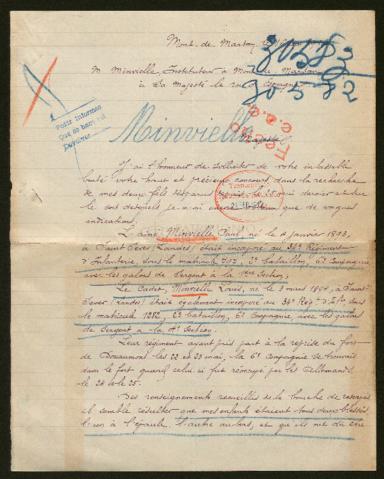 Mont-de-Marsan
30583
30582
M Minvielle, Instituteur à Mont-de-Marsan
à Sa Majesté le roi d'Espagne
Pedir informes
Que se haga
Minvielle
J'ai l'honneur de solliciter de votre inlassable
bonté votre haut et précieux concours dans la recherche
de mes deux fils disparus
le sort desquels je n'ai que de vagues
indications.
L'aîné, Minvielle Paul, né le 4 janvier 1893,
à Saint-Sever (Landes), était incorporé au 34e Régiment
d'Infanterie, sous le matricule, 2e bataillon, 6e Compagnie
avec les galons de Sergent à la section.
Le Cadet, Minvielle Louis, né le 3 mars, à Saint-
Sever (Landes) était également incorporé au 34e Régt d'Infrie sous
le matricule 1252, 2e bataillon, 6e Compagnie, avec les galons
de Sergent à la 4e section.
Leur régiment ayant pris part à la reprise du fort
de Douaumont les 22 et 23 mai, la 6e Compagnie se trouvait
dans le fort quand celui-ci fut réoccupé par les Allemands
le 24 et le 25.
Des renseignements recueillis de la bouche de rescapés
il semble résulter que mes enfants étaient tous deux blessés
l'un à l'épaule, l'autre au bras, et que ils ont dû être